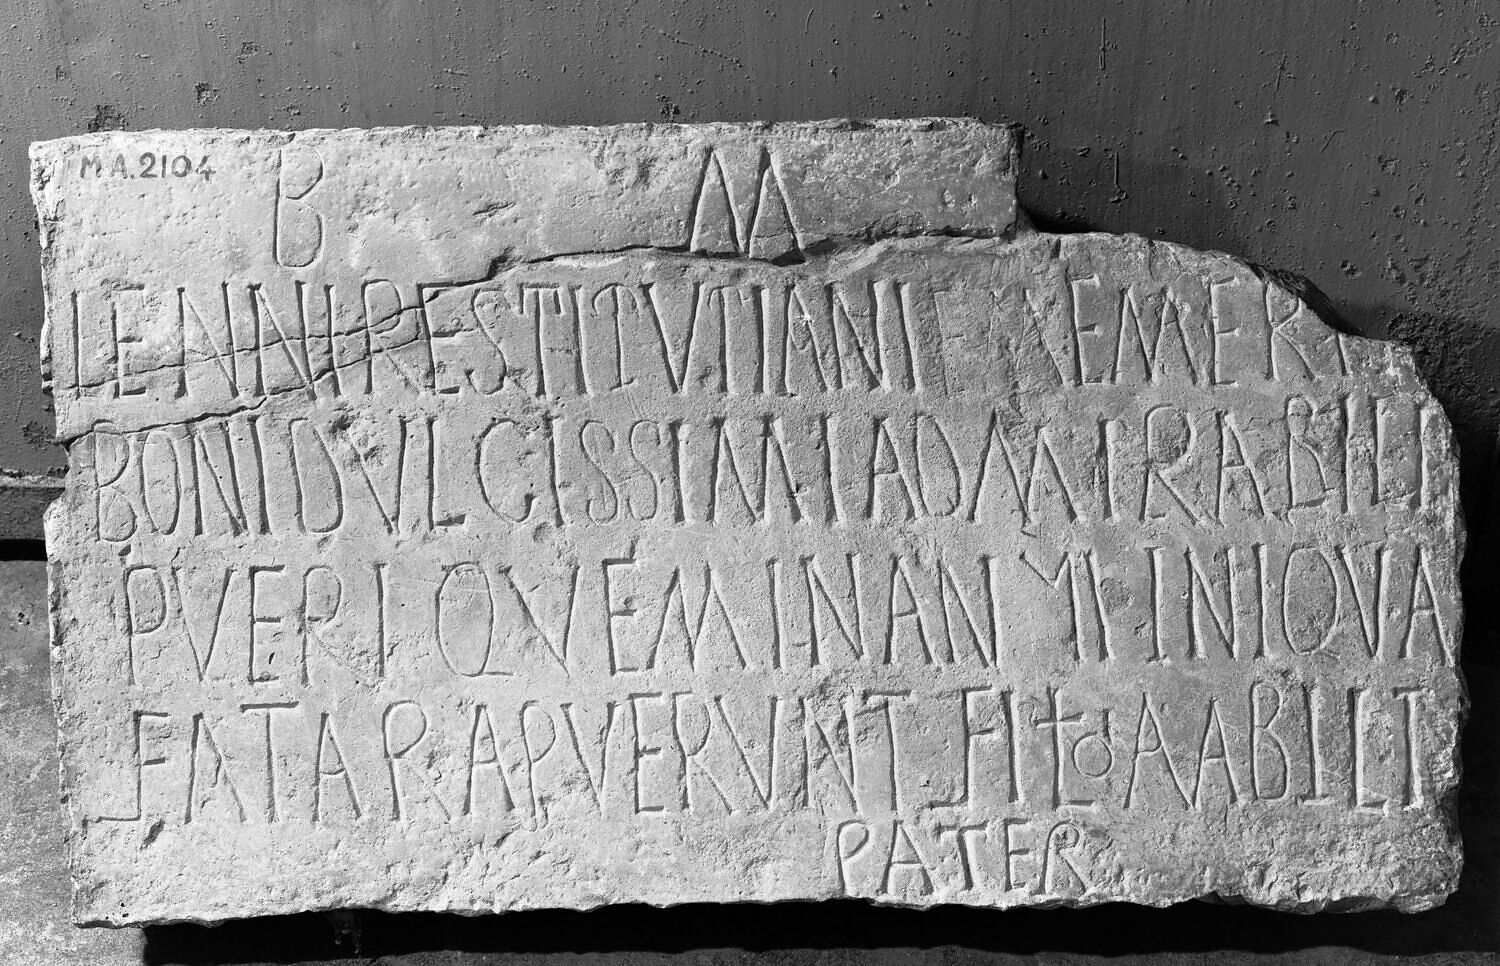 M A.2104 B M
LENNI RESTITVTIANI EM EMERI
BONI DVLCISSIMI ADMIRABILI
PVERI QVEM IN ANN VII INIQVA
FATA RAPVERVNT FILIO AMABILI
PATER